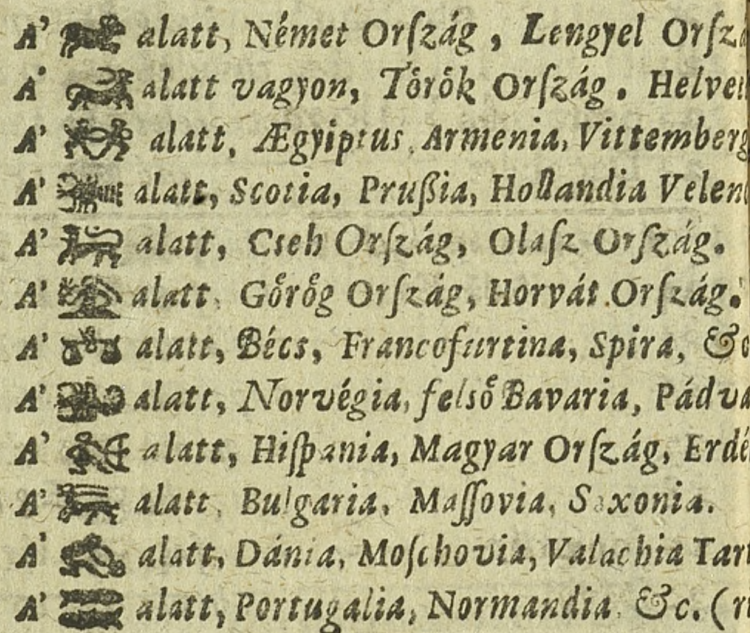 A' alatt, Német Orſzág, Lengyel Orſzá
A' alatt vagyon, Tŏrŏk Orſzág. Helvet
A' alatt, Ægyiptus, Armenia, Vittemberg
A' alatt, Scotia, Prußia, Hollandia Velen
A' alatt, Cseh Orſzág, Olaſz Orſzág.
A' alatt, Gőrőg Orſzág, Horvát Orſzág.
A' alatt, Bécs, Francofurtina, Spira, &c
A' alatt, Norvégia, felső Bavaria, Pádva
A' alatt, Hiſpania, Magyar Orſzág, Erdé
A' alatt, Bulgaria, Maſſovia, Saxonia.
A' alatt, Dánia, Moſchovia, Valachia Tart
A' alatt, Portugalia, Normandia &c. (